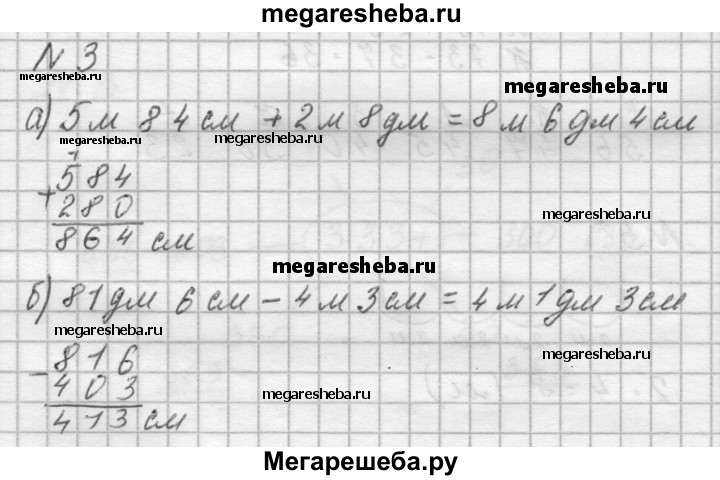 megaresheba.ru
N 3
megaresheba.ru
megaresheba.ru
а) 5 м 84 см + 2 м 8 дм = 8 м 6 дм 4 см
megaresheba.ru
megaresheba.ru
1
+ 584
280
864 см
megaresheba.ru
megaresheba.ru
б) 81 дм 6 см - 4 м 3 см = 4 м 1 дм 3 см
megaresheba.ru
megaresheba.ru
- 816
403
413 см
megaresheba.ru
Мегарешеба.ру